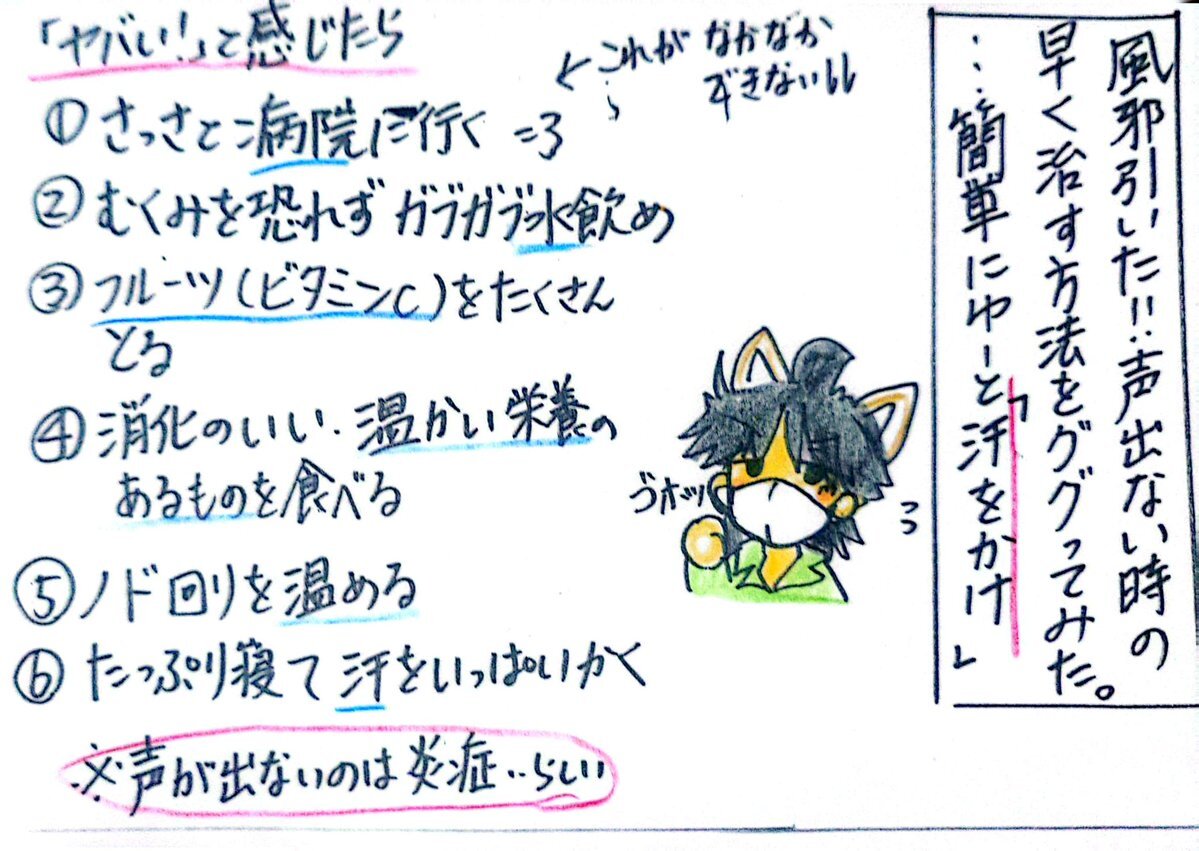 風邪引いた!!‥声出ない時の
早く治す方法をググってみた。
…簡単にゆーと「汗をかけ」
「ヤバい!」と感じたら
①さっさと病院に行く =3
←これが なかなか
できない
②むくみを恐れずガブガブ水飲め
③フルーツ(ビタミンC)をたくさん
とる
④消化のいい・温かい栄養の
あるものを食べる
⑤ノド回りを温める
⑥たっぷり寝て汗をいっぱいかく
※声が出ないのは炎症‥らしい
ゴホッ